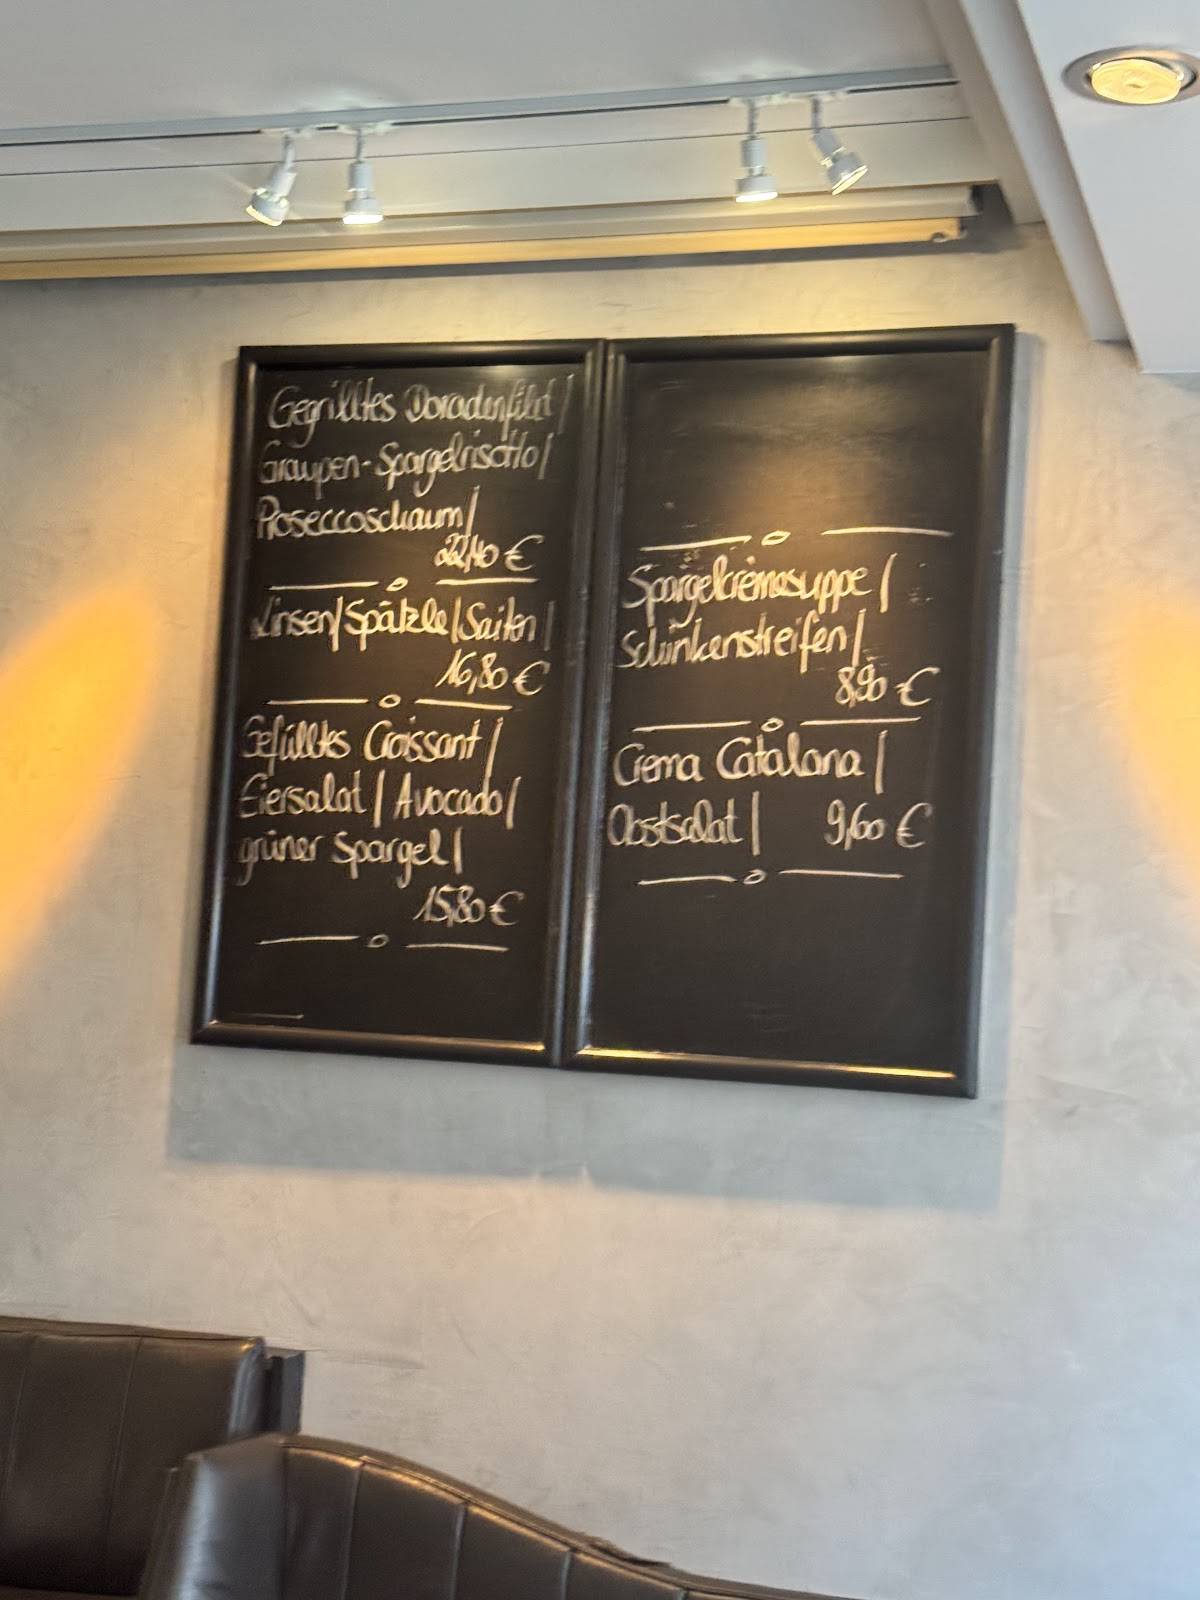 Gegrilltes Doradenfilet /
Graupen-Spargelrisotto /
Proseccoschaum /
22,40 €
Linsen / Spätzle / Saiten /
16,80 €
Gefülltes Croissant /
Eiersalat / Avocado /
grüner Spargel /
15,80 €
Spargelcrèmesuppe /
Schinkenstreifen /
8,90 €
Crema Catalana /
Obstsalat / 9,60 €